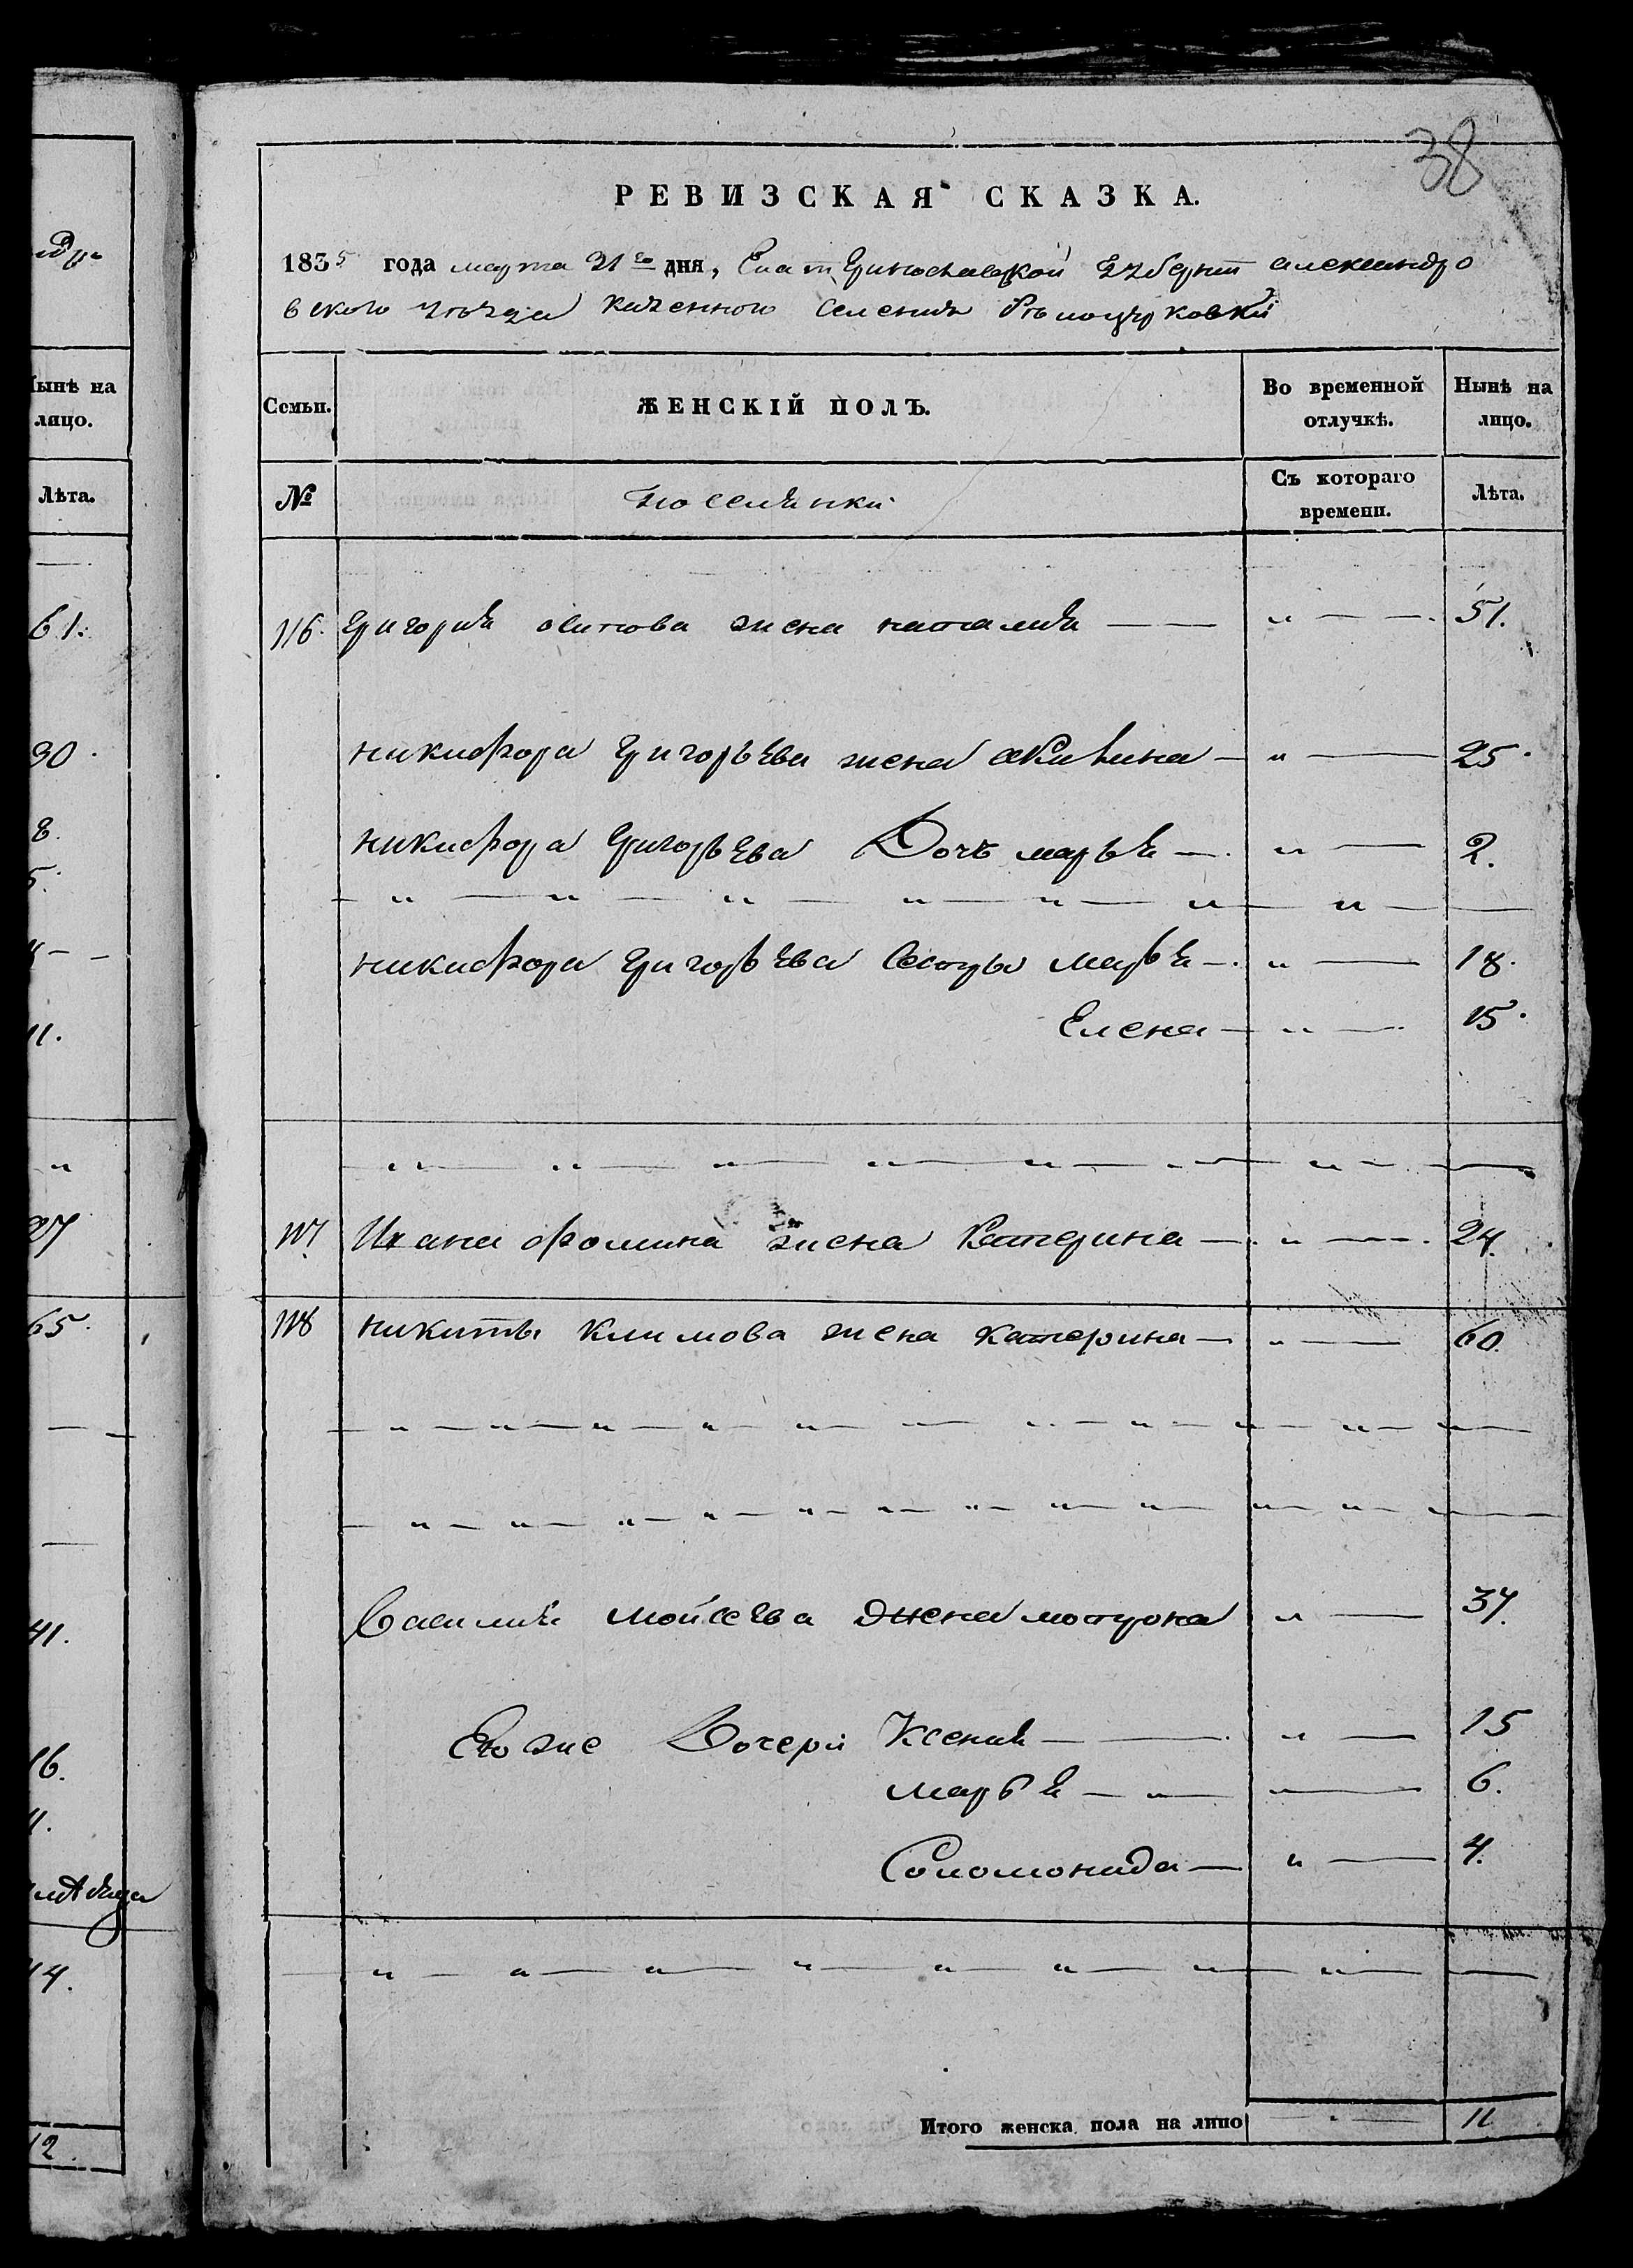 ндр
Нынѣ на
лицо.
Лѣта.
61.
30.
8.
5.
11.
27
65.
41.
16.
11.
14.
12.
38
РЕВИЗСКАЯ СКАЗКА.
1835 года марта 21го дня, Екатеринославской губернии александро
вского уѣзда казенного селения Бѣлоцерковки
Семьи. ЖЕНСКІЙ ПОЛЪ. Во временной отлучкѣ. Нынѣ на лицо.
№ Поселянки Съ котораго времени. Лѣта.
116. григория осипова жена наталия — — " — — 51.
никифора григорьева жена акилина — " — 25.
никифора григорьева Дочь марья — " — 2.
— " — " — " — " — " — " — " —
никифора григорьева Сестры марья — " — 18.
Елена — " — 15.
— " — " — " — " — " — " — " —
117 Ивана фомина жена Катерина — " — 24.
118 никиты климова жена катерина — " — 60.
— " — " — " — " — " — " — " — " —
— " — " — " — " — " — " — " — " —
Василия мойсеева жена мотрона " — 37.
Его же Дочери Ксения — — " — 15
марья — " — " — 6.
Соломонида — " — 4.
— " — " — " — " — " — " — " —
Итого женска пола на лицо — " — 11